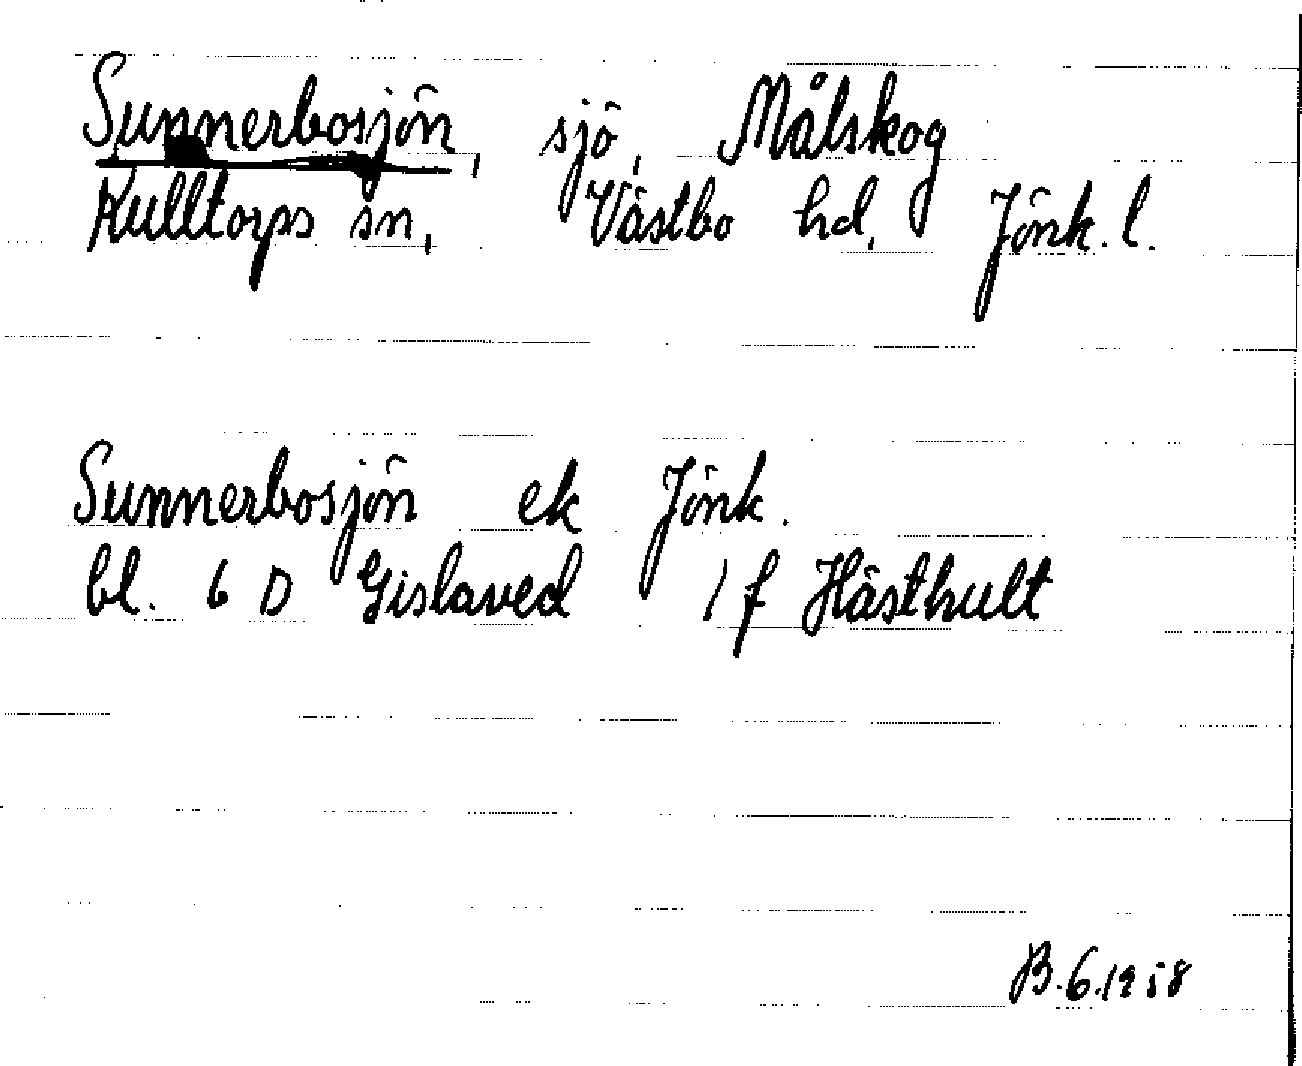 Sunnerbosjön, sjö, Målskog
Kulltorps sn, Västbo hd, Jönk. l.
Sunnerbosjön ek Jönk.
bl. 6 D Gislaved 1 f Hästhult
B. 6. 1958